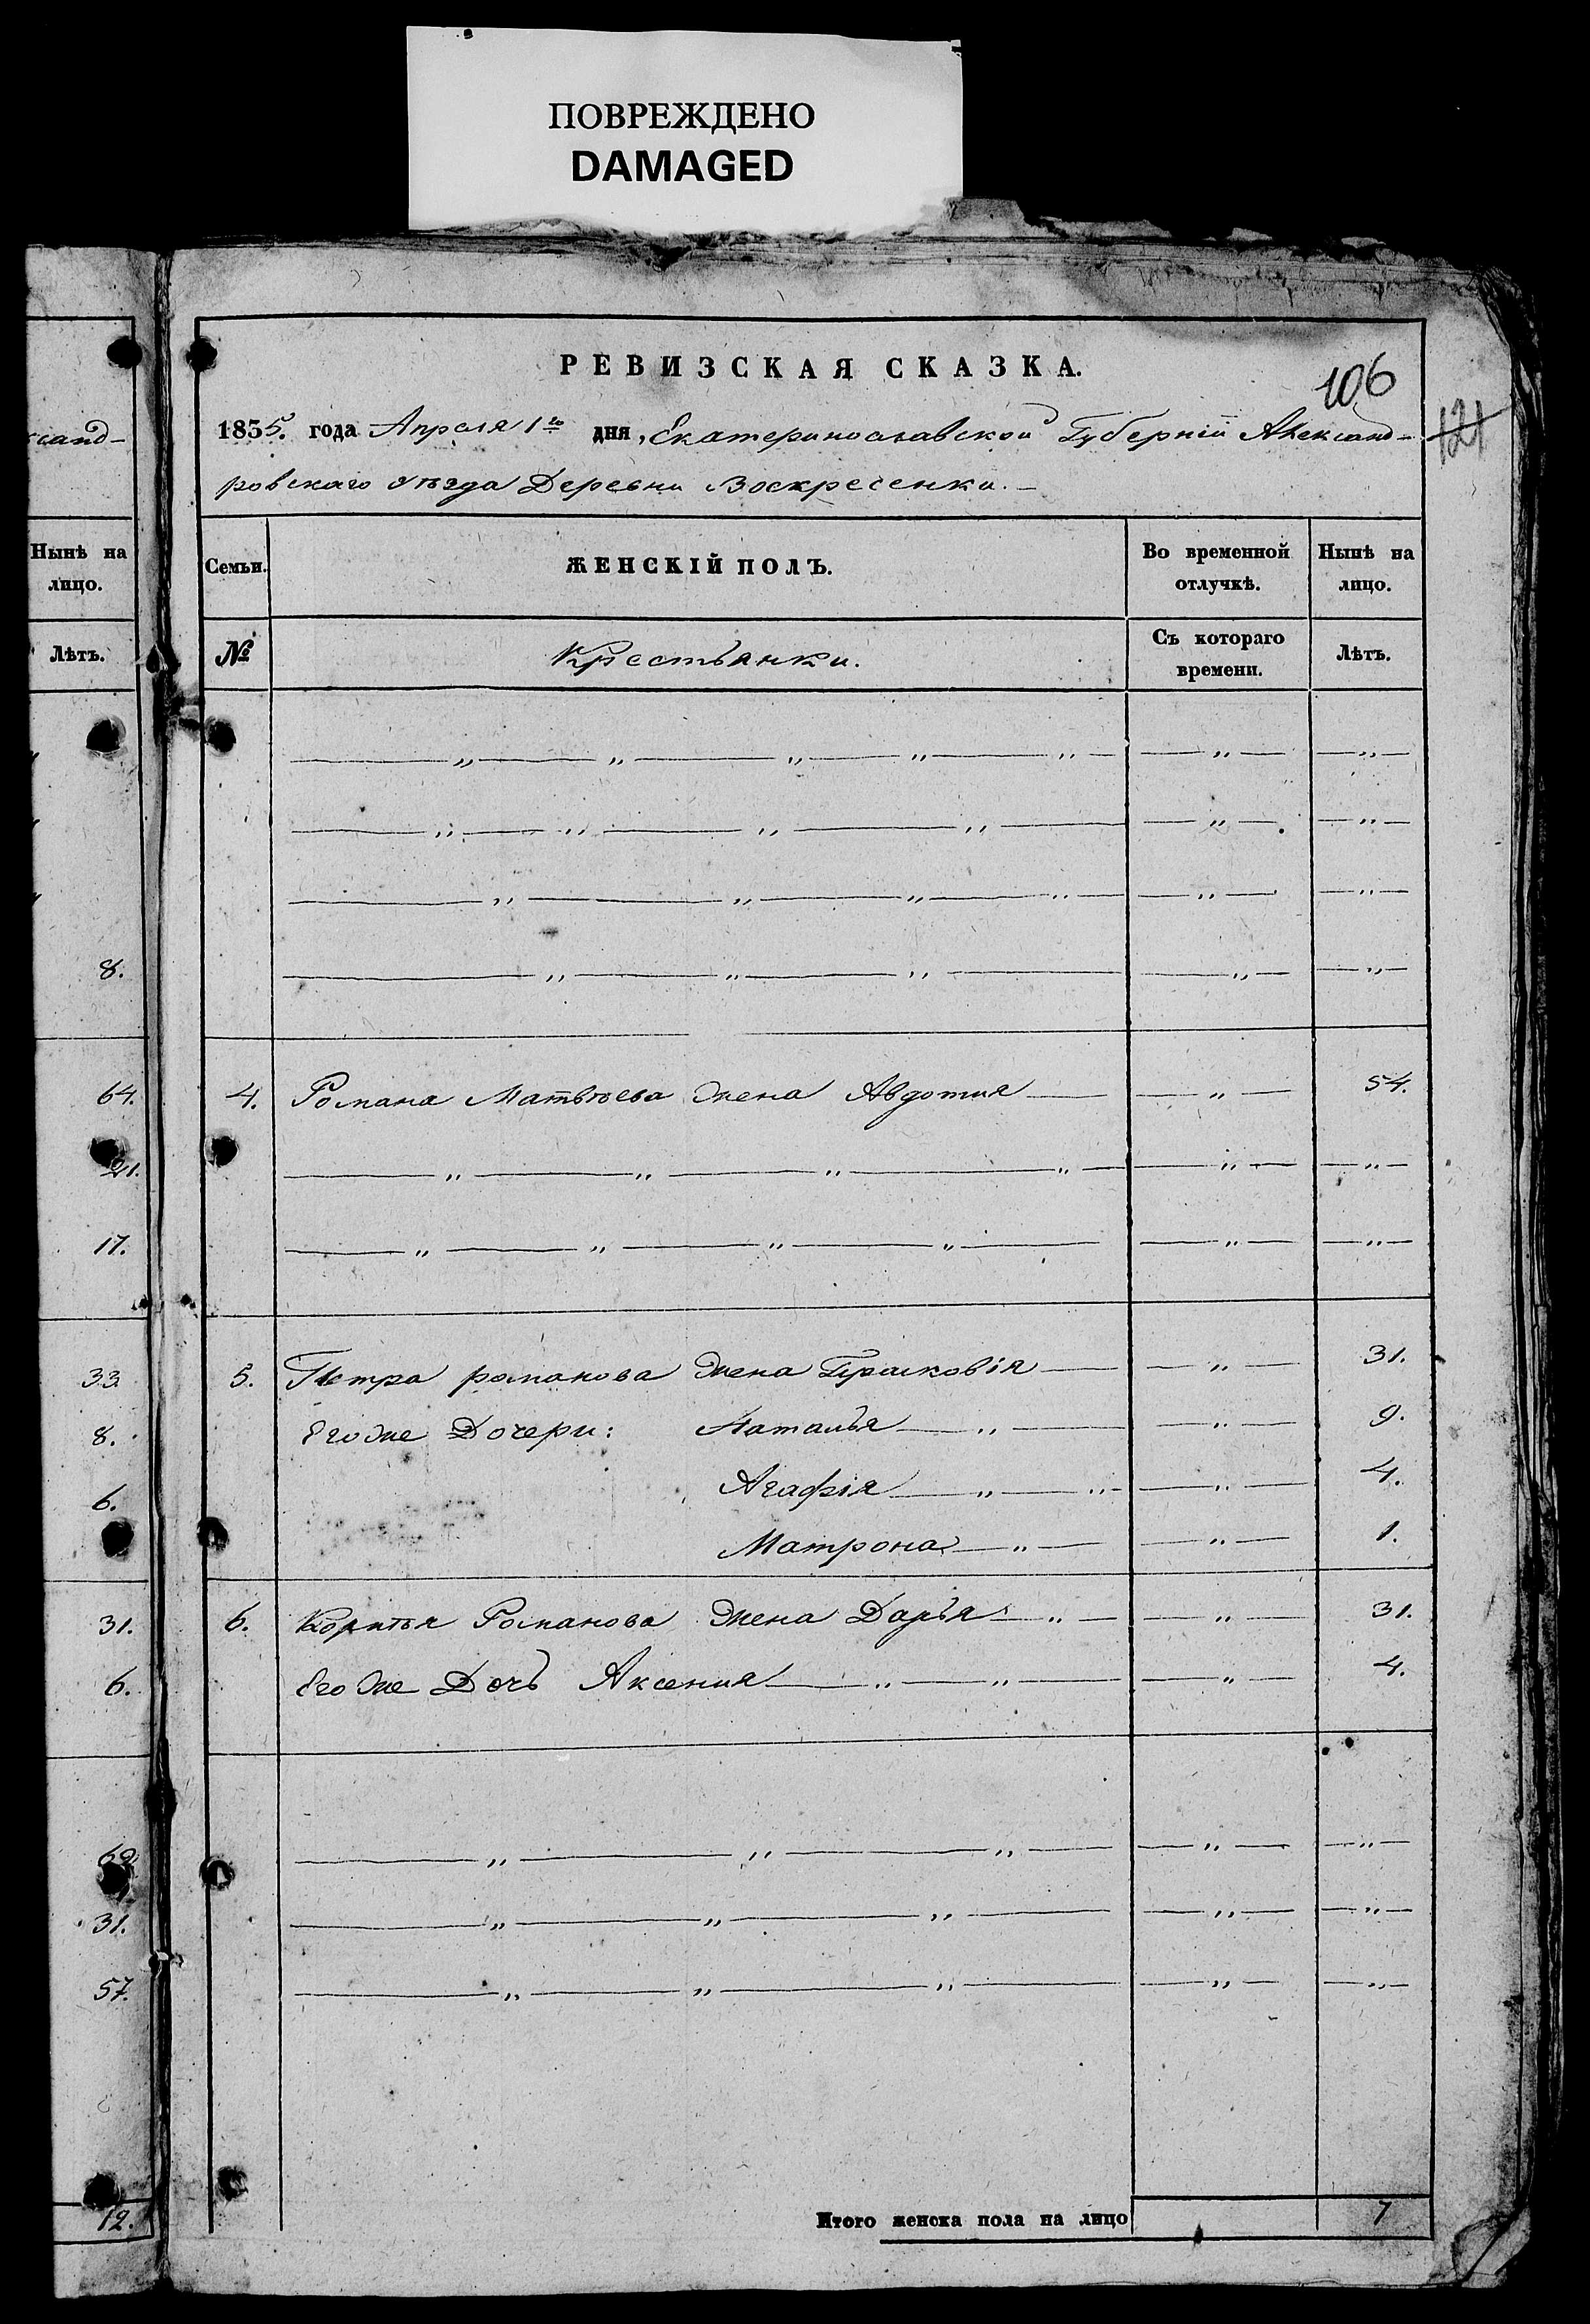 ПОВРЕЖДЕНО
DAMAGED
РЕВИЗСКАЯ СКАЗКА.
106
121
1855. года Апреля 1го дня, Екатеринославской Губерніи Александ-
ровскаго уѣзда Деревни Воскресенки.
Семьи. ЖЕНСКІЙ ПОЛЪ. Во временной отлучкѣ. Нынѣ на лицо.
№ Крестьянки. Съ котораго времени. Лѣтъ.
— „ — „ — „ — „ — „ — — „ — — „ —
— „ — „ — „ — „ — — „ — — „ —
— „ — „ — „ — „ — — „ — — „ —
— „ — „ — „ — — „ — — „ —
4. Романа Матвѣева жена Авдотия — — „ — 54.
— „ — „ — „ — „ — — „ — — „ —
— „ — „ — „ — „ — — „ — — „ —
5. Петра романова жена Прасковія — — „ — 31.
Егоже Дочери: Наталья — „ — — „ — 9.
Агафія — „ — „ — — „ — 4.
Матрона — „ — — „ — 1.
6. Романова жена Дарья — „ — — „ — 31.
Егоже Дочь Аксения — „ — „ — — „ — 4.
— „ — „ — „ — — „ — — „ —
— „ — „ — „ — — „ — — „ —
— „ — „ — „ — — „ — — „ —
Итого женска пола на лицо 7
сандъ-
Нынѣ на
лицо.
Лѣтъ.
8.
64.
21.
17.
33
8.
6.
31.
6.
31.
57.
12.